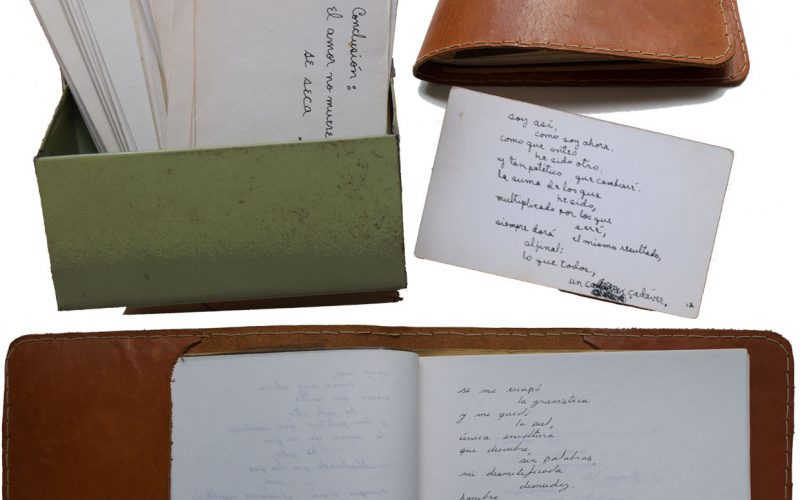 Conclusión:
El amor no muere
se seca
soy así,
como soy ahora.
como que antes
he sido otro,
y tan patético que cambiaré.
la suma de los que
he sido,
multiplicado por los que
seré,
siempre dará el mismo resultado,
al final:
lo que todos,
un cadáver.
12
se me escapó
la gramática
y me quedó
la piel,
única envoltura
que descubre,
sin palabras,
mi desmitificada
desnudez.
hombre